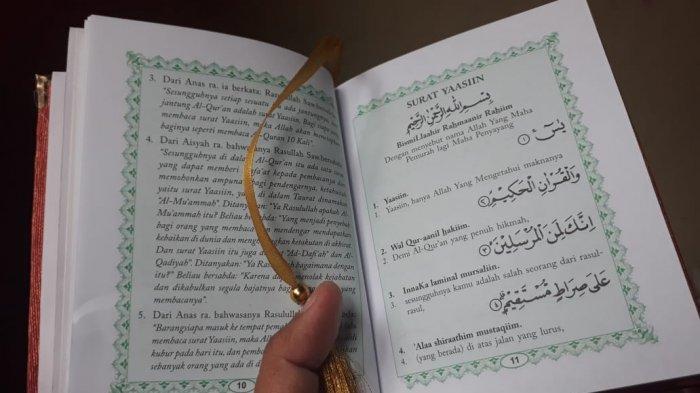 3. Dari Anas ra. ia berkata: Rasulullah Saw bersabda:
"Sesungguhnya setiap sesuatu ada jantungnya dan
jantung Al-Qur'an adalah surat Yaasiin. Bagi siapa
membaca surat Yaasiin, maka Allah akan mencatat
baginya seperti membaca Al-Qur'an 10 Kali".
4. Dari Aisyah ra. bahwasanya Rasulullah Saw bersabda:
"Sesungguhnya di dalam Al-Qur'an itu ada satu surat
yang dapat memberi syafa'at kepada pembacanya dan
memohonkan ampunan bagi pendengarnya, ketahuilah
yaitu surat Yaasiin, yang di dalam Taurat dinamakan
"Al-Mu'ammah". Ditanyakan: "Ya Rasulullah apakah Al-
Mu'ammah itu? Beliau bersabda: "Yang menjadi penyebab
bagi orang yang membacanya mendengar mendapatkan
kebaikan di dunia dan menghilangkan ketakutan di akhirat.
Dan surat Yaasiin itu juga dinamakan "Ad-Dafi'ah" dan Al-
Qadiyah". Ditanyakan: "Ya Rasulullah bagaimana dengan
itu?" Beliau bersabda: "Karena dapat menolak kejahatan
dan dikabulkan segala hajatnya bagi orang yang
membacanya".
5. Dari Anas ra. bahwasanya Rasulullah bersabda:
"Barangsiapa masuk ke tempat
membaca surat Yaasiin, maka Allah
kubur pada hari itu, dan
sebanyak orang yang ada di
10
SURAT YAASIIN
بِسْمِ اللهِ الرَّحْمٰنِ الرَّحِيْمِ
Bismillaahir Rahmaanir Rahiim
Dengan menyebut nama Allah Yang Maha
Pemurah lagi Maha Penyayang
يٰسۤ ۚ ﴿١﴾
1. Yaasiin.
1. Yaasiin, hanya Allah Yang Mengetahui maknanya
وَالْقُرْاٰنِ الْحَكِيْمِ ﴿٢﴾
2. Wal Qur-aanil hakiim.
2. Demi Al-Qur'an yang penuh hikmah,
اِنَّكَ لَمِنَ الْمُرْسَلِيْنَ ﴿٣﴾
3. InnaKa laminal mursaliin.
3. sesungguhnya kamu adalah salah seorang dari rasul-
rasul,
عَلٰى صِرَاطٍ مُّسْتَقِيْمٍ ﴿٤﴾
4. 'Alaa shiraathim mustaqiim.
4. (yang berada) di atas jalan yang lurus,
11